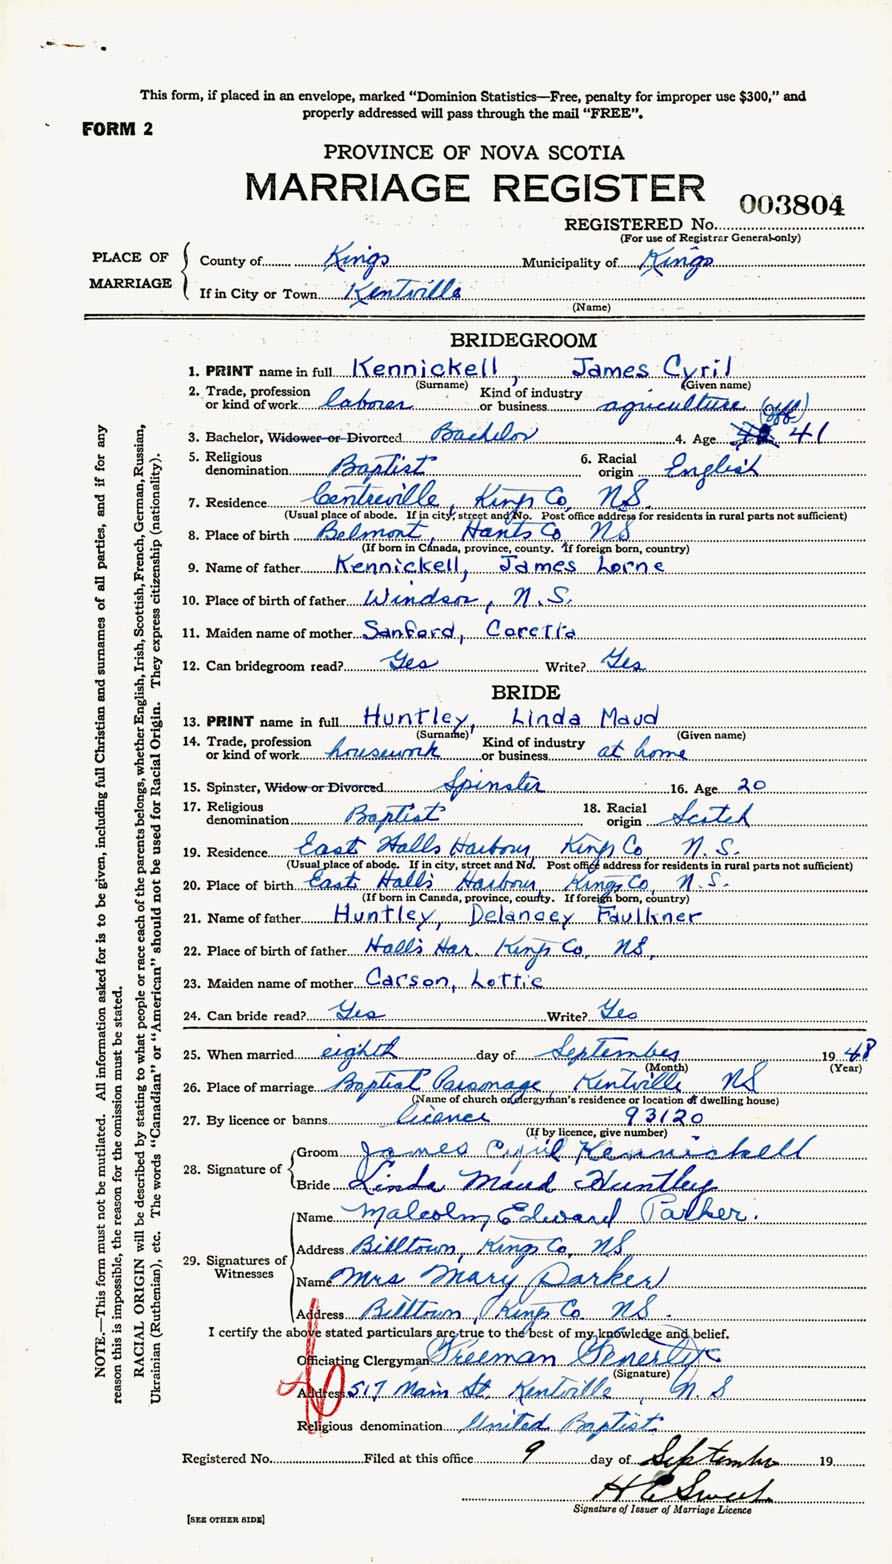 This form, if placed in an envelope, marked “Dominion Statistics—Free, penalty for improper use $300,” and
properly addressed will pass through the mail “FREE”.
FORM 2
PROVINCE OF NOVA SCOTIA
MARRIAGE REGISTER
003804
REGISTERED No.
(For use of Registrar General only)
PLACE OF MARRIAGE
County of Kings Municipality of Kings
If in City or Town Kentville
(Name)
BRIDEGROOM
1. PRINT name in full Kennickell, James Cyril
(Surname) (Given name)
2. Trade, profession or kind of work laborer Kind of industry or business agriculture
3. Bachelor, Widower or Divorced Bachelor 4. Age 41
5. Religious denomination Baptist 6. Racial origin English
7. Residence Centreville, Kings Co, N.S.
(Usual place of abode. If in city, street and No. Post office address for residents in rural parts not sufficient)
8. Place of birth Belmont, Hants Co NS
(If born in Canada, province, county. If foreign born, country)
9. Name of father Kennickell, James Lorne
10. Place of birth of father Windsor, N.S.
11. Maiden name of mother Sanford, Coretta
12. Can bridegroom read? Yes Write? Yes
BRIDE
13. PRINT name in full Huntley, Linda Maud
(Surname) (Given name)
14. Trade, profession or kind of work housework Kind of industry or business at home
15. Spinster, Widow or Divorced Spinster 16. Age 20
17. Religious denomination Baptist 18. Racial origin Scotch
19. Residence East Halls Harbour, Kings Co, N.S.
(Usual place of abode. If in city, street and No. Post office address for residents in rural parts not sufficient)
20. Place of birth East Hall's Harbour, Kings Co, N.S.
(If born in Canada, province, county. If foreign born, country)
21. Name of father Huntley, Delancey Faulkner
22. Place of birth of father Hall's Har. Kings Co, NS,
23. Maiden name of mother Carson, Lottie
24. Can bride read? Yes Write? Yes
25. When married eighth day of September 19 48
(Month) (Year)
26. Place of marriage Baptist Parsonage, Kentville NS
(Name of church or clergyman's residence or location of dwelling house)
27. By licence or banns licence 93120
(If by licence, give number)
28. Signature of
Groom James Cyril Kennickell
Bride Linda Maud Huntley
29. Signatures of Witnesses
Name Malcolm Edward Parker.
Address Billtown, Kings Co, NS
Name Mrs Mary Parker
Address Billtown, Kings Co. NS.
I certify the above stated particulars are true to the best of my knowledge and belief.
Officiating Clergyman Freeman Fenerty
(Signature)
Address 517 Main St. Kentville, N S
Religious denomination United Baptist
Registered No. Filed at this office 9 day of September 19
H E Sweet
Signature of Issuer of Marriage Licence
[SEE OTHER SIDE]
NOTE.—This form must not be mutilated. All information asked for is to be given, including full Christian and surnames of all parties, and if for any
reason this is impossible, the reason for the omission must be stated.
RACIAL ORIGIN will be described by stating to what people or race each of the parents belongs, whether English, Irish, Scottish, French, German, Russian,
Ukrainian (Ruthenian), etc. The words “Canadian” or “American” should not be used for Racial Origin. They express citizenship (nationality).